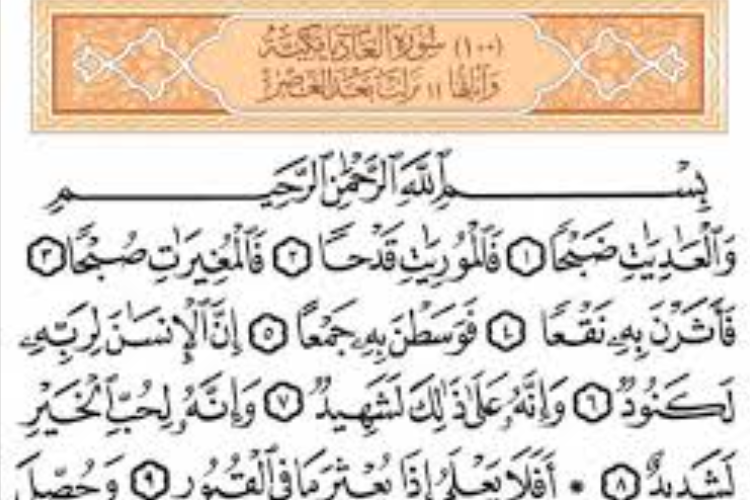 (١٠٠) سُورَةُ الْعَادِيَاتِ مَكِّيَّةٌ
وَآيَاتُهَا ١١ نَزَلَتْ بَعْدَ الْعَصْرِ
بِسْمِ ٱللَّهِ ٱلرَّحْمَٰنِ ٱلرَّحِيمِ
وَٱلْعَٰدِيَٰتِ ضَبْحًا ١ فَٱلْمُورِيَٰتِ قَدْحًا ٢ فَٱلْمُغِيرَٰتِ صُبْحًا ٣
فَأَثَرْنَ بِهِۦ نَقْعًا ٤ فَوَسَطْنَ بِهِۦ جَمْعًا ٥ إِنَّ ٱلْإِنسَٰنَ لِرَبِّهِۦ
لَكَنُودٌ ٦ وَإِنَّهُۥ عَلَىٰ ذَٰلِكَ لَشَهِيدٌ ٧ وَإِنَّهُۥ لِحُبِّ ٱلْخَيْرِ
لَشَدِيدٌ ٨ * أَفَلَا يَعْلَمُ إِذَا بُعْثِرَ مَا فِى ٱلْقُبُورِ ٩ وَحُصِّلَ